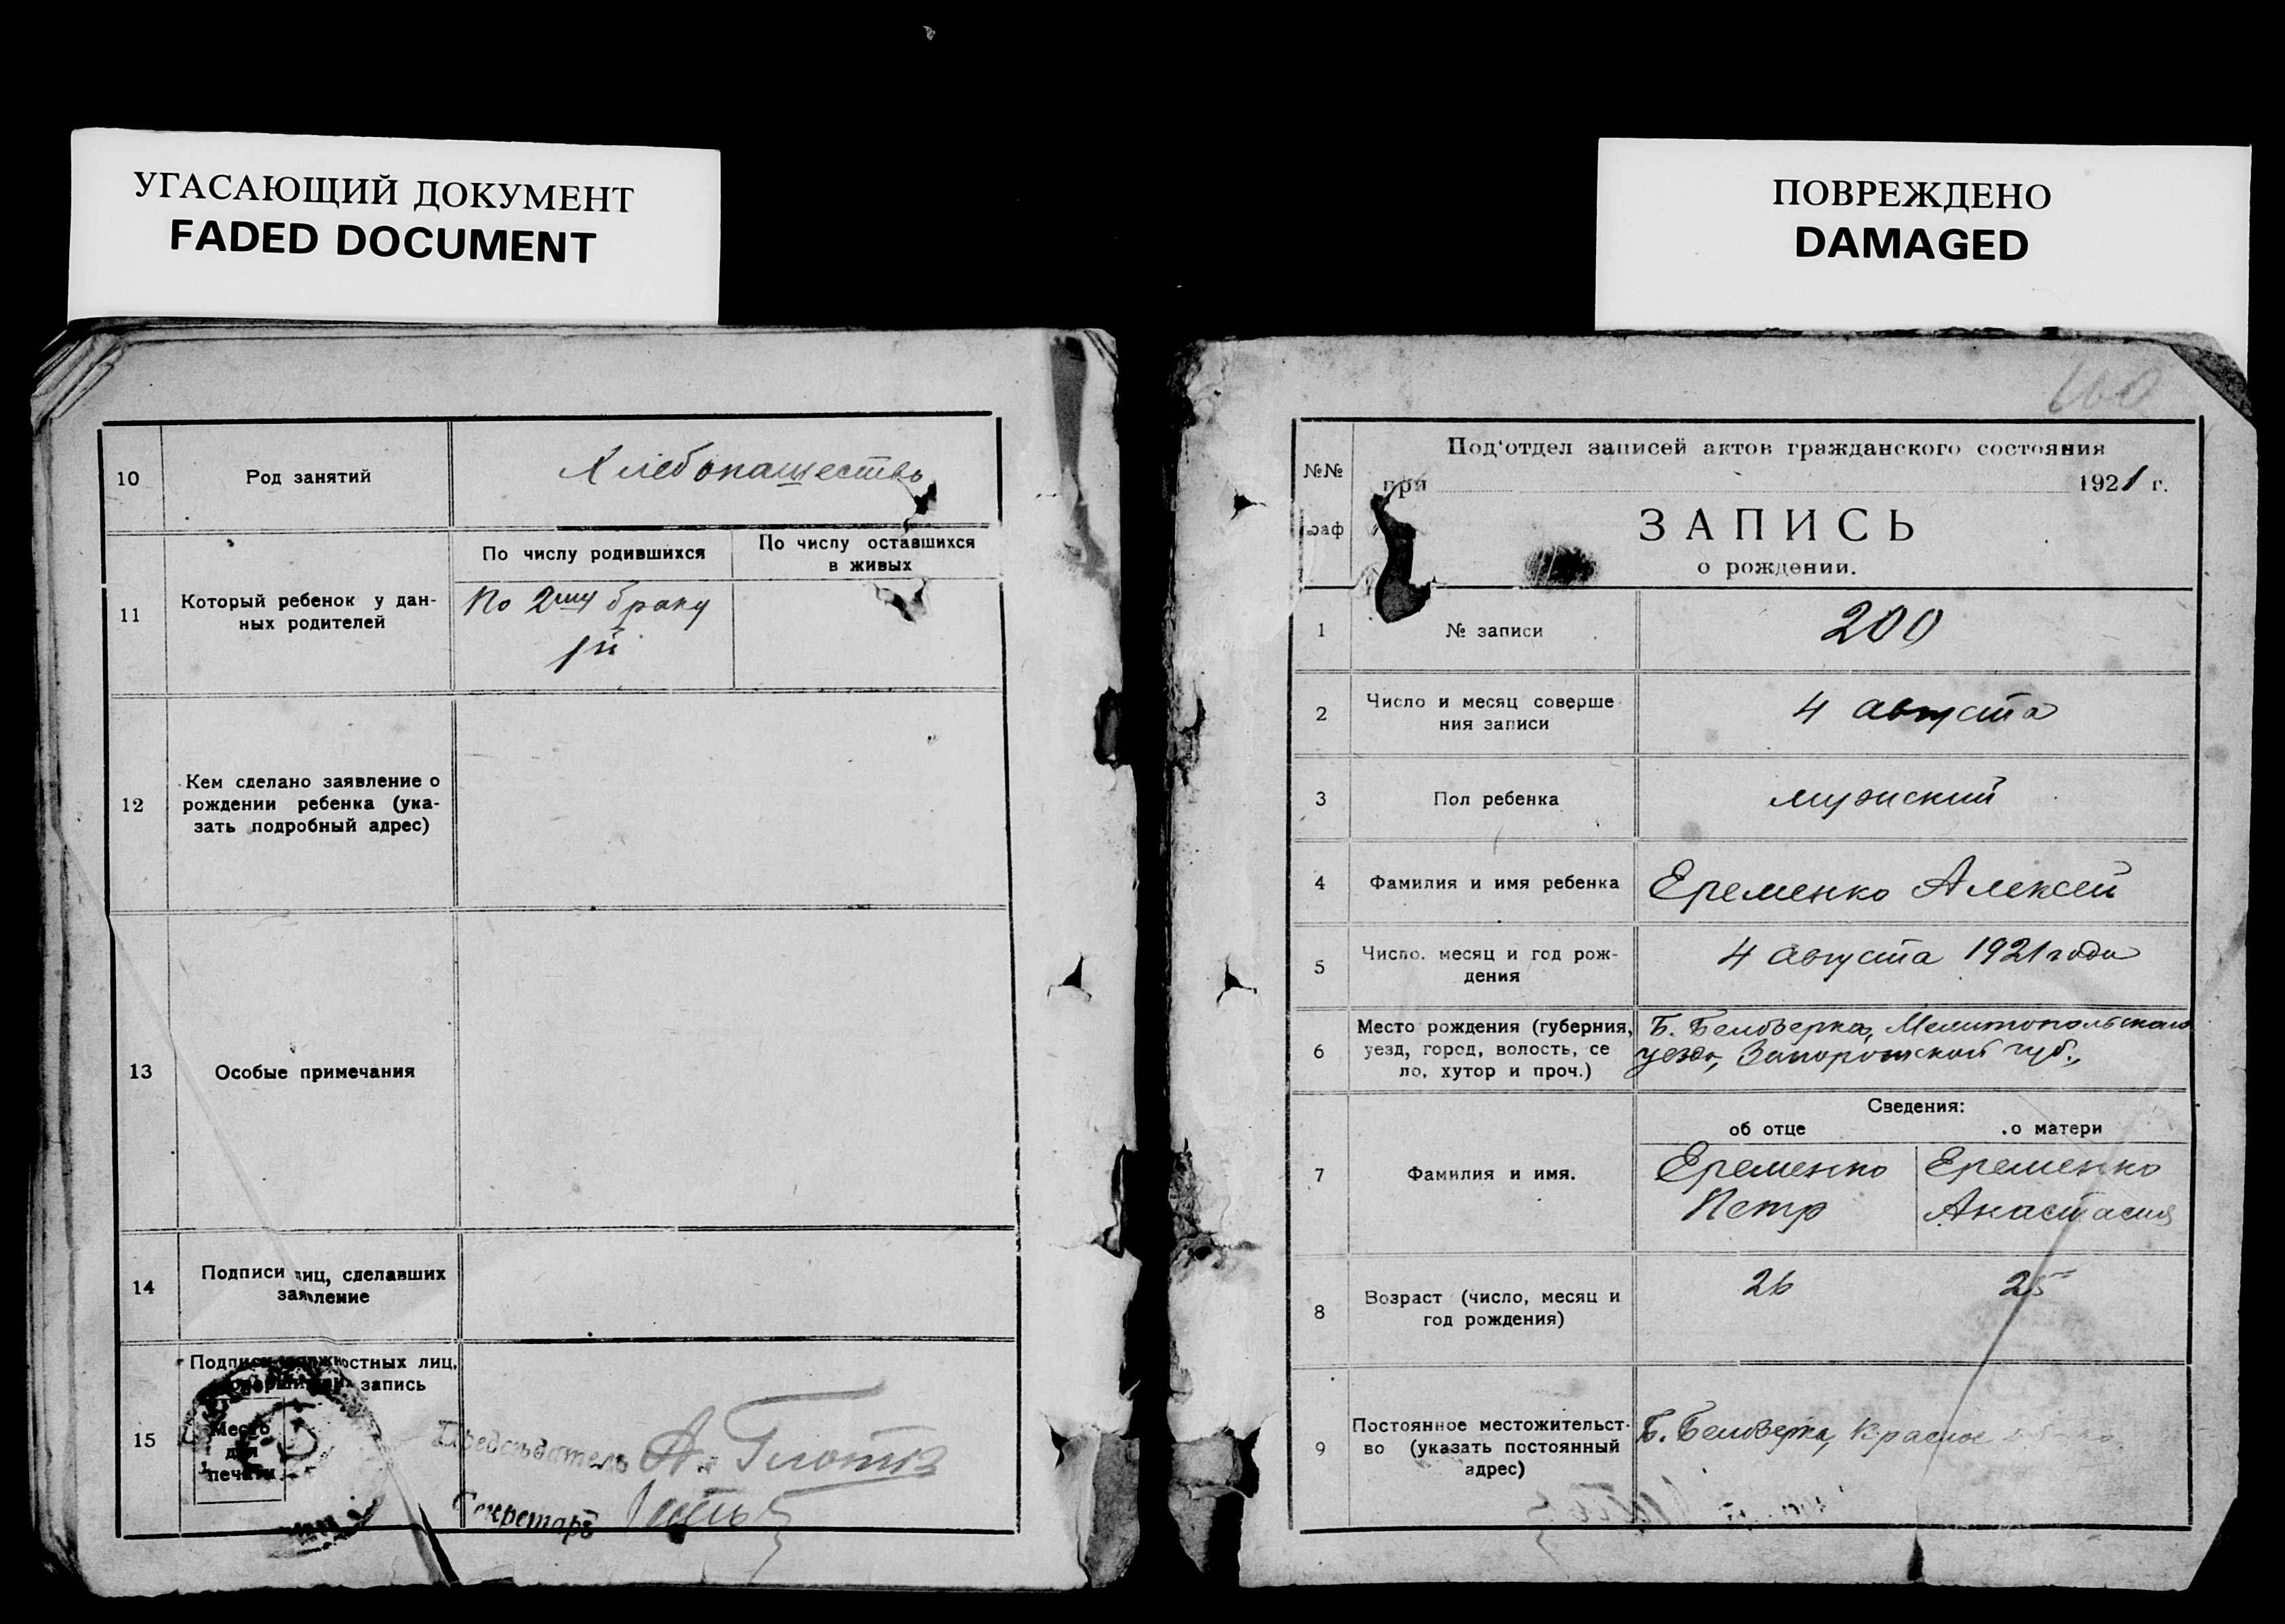 УГАСАЮЩИЙ ДОКУМЕНТ
FADED DOCUMENT
10
Род занятий
Хлебопашество
11
Который ребенок у дан-
ных родителей
По числу родившихся
По числу оставшихся
в живых
По 2му браку
1й
12
Кем сделано заявление о
рождении ребенка (ука-
зать подробный адрес)
13
Особые примечания
14
Подписи лиц, сделавших
заявление
15
Подписи должностных лиц,
запись
Место
для
печати
Председатель А. Глотка
Секретарь
ПОВРЕЖДЕНО
DAMAGED
100
№№
раф
Под'отдел записей актов гражданского состояния
при 1921 г.
ЗАПИСЬ
о рождении.
1
№ записи
200
2
Число и месяц соверше
ния записи
4 августа
3
Пол ребенка
мужский
4
Фамилия и имя ребенка
Еременко Алексей
5
Число, месяц и год рож-
дения
4 августа 1921 года
6
Место рождения (губерния,
уезд, город, волость, се
ло, хутор и проч.)
Б. Белозерка, Мелитопольскаго
уезда, Запорожской губ.,
Сведения:
об отце
о матери
7
Фамилия и имя.
Еременко
Петр
Еременко
Анастасия
8
Возраст (число, месяц и
год рождения)
26
25
9
Постоянное местожительст-
во (указать постоянный
адрес)
Б. Белозерка, Красное